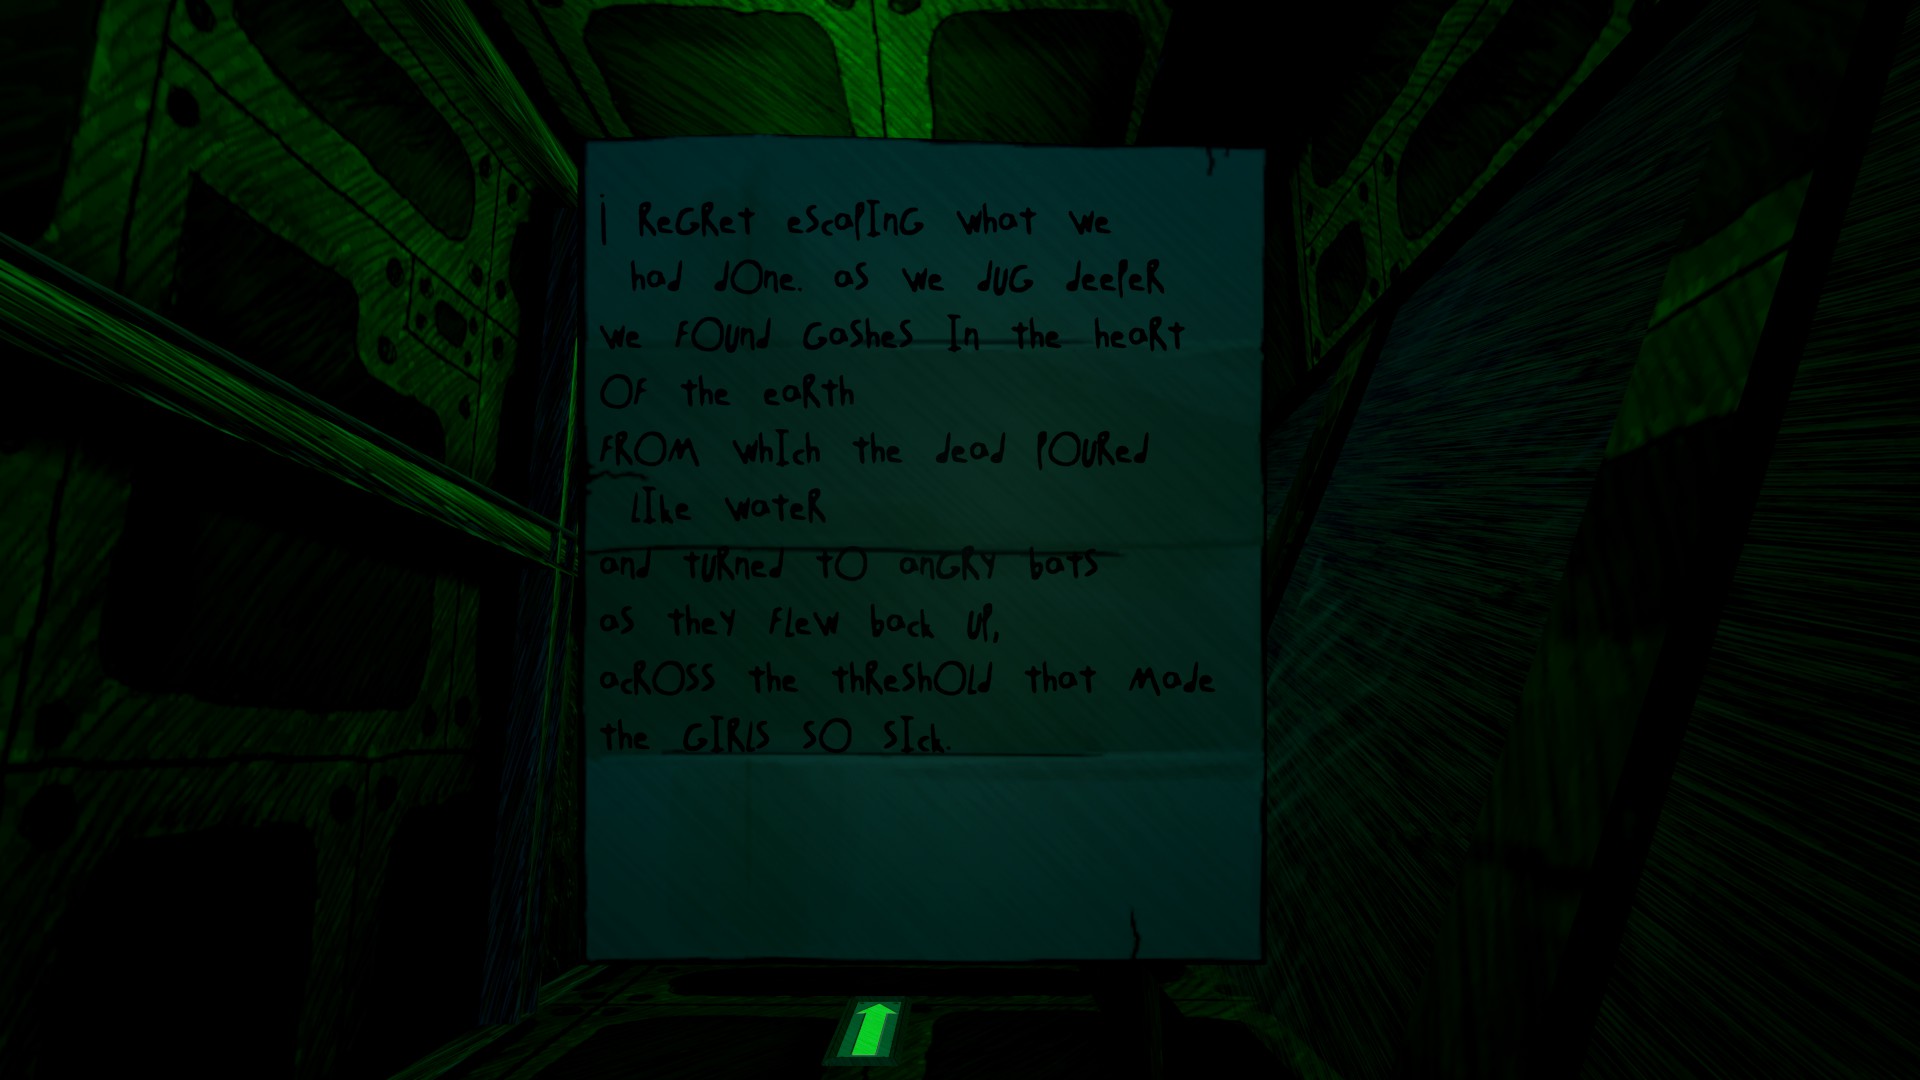 i ReGRet escaPInG what we
had dOne. as we dUG deePeR
we FOUnd GasheS In the heaRt
OF the eaRth
FROM whIch the dead POURed
LIke wateR
and tURned tO anGRY batS
as theY FLeW back UP,
acROSS the thReShOLd that Made
the GIRLS SO SIck.